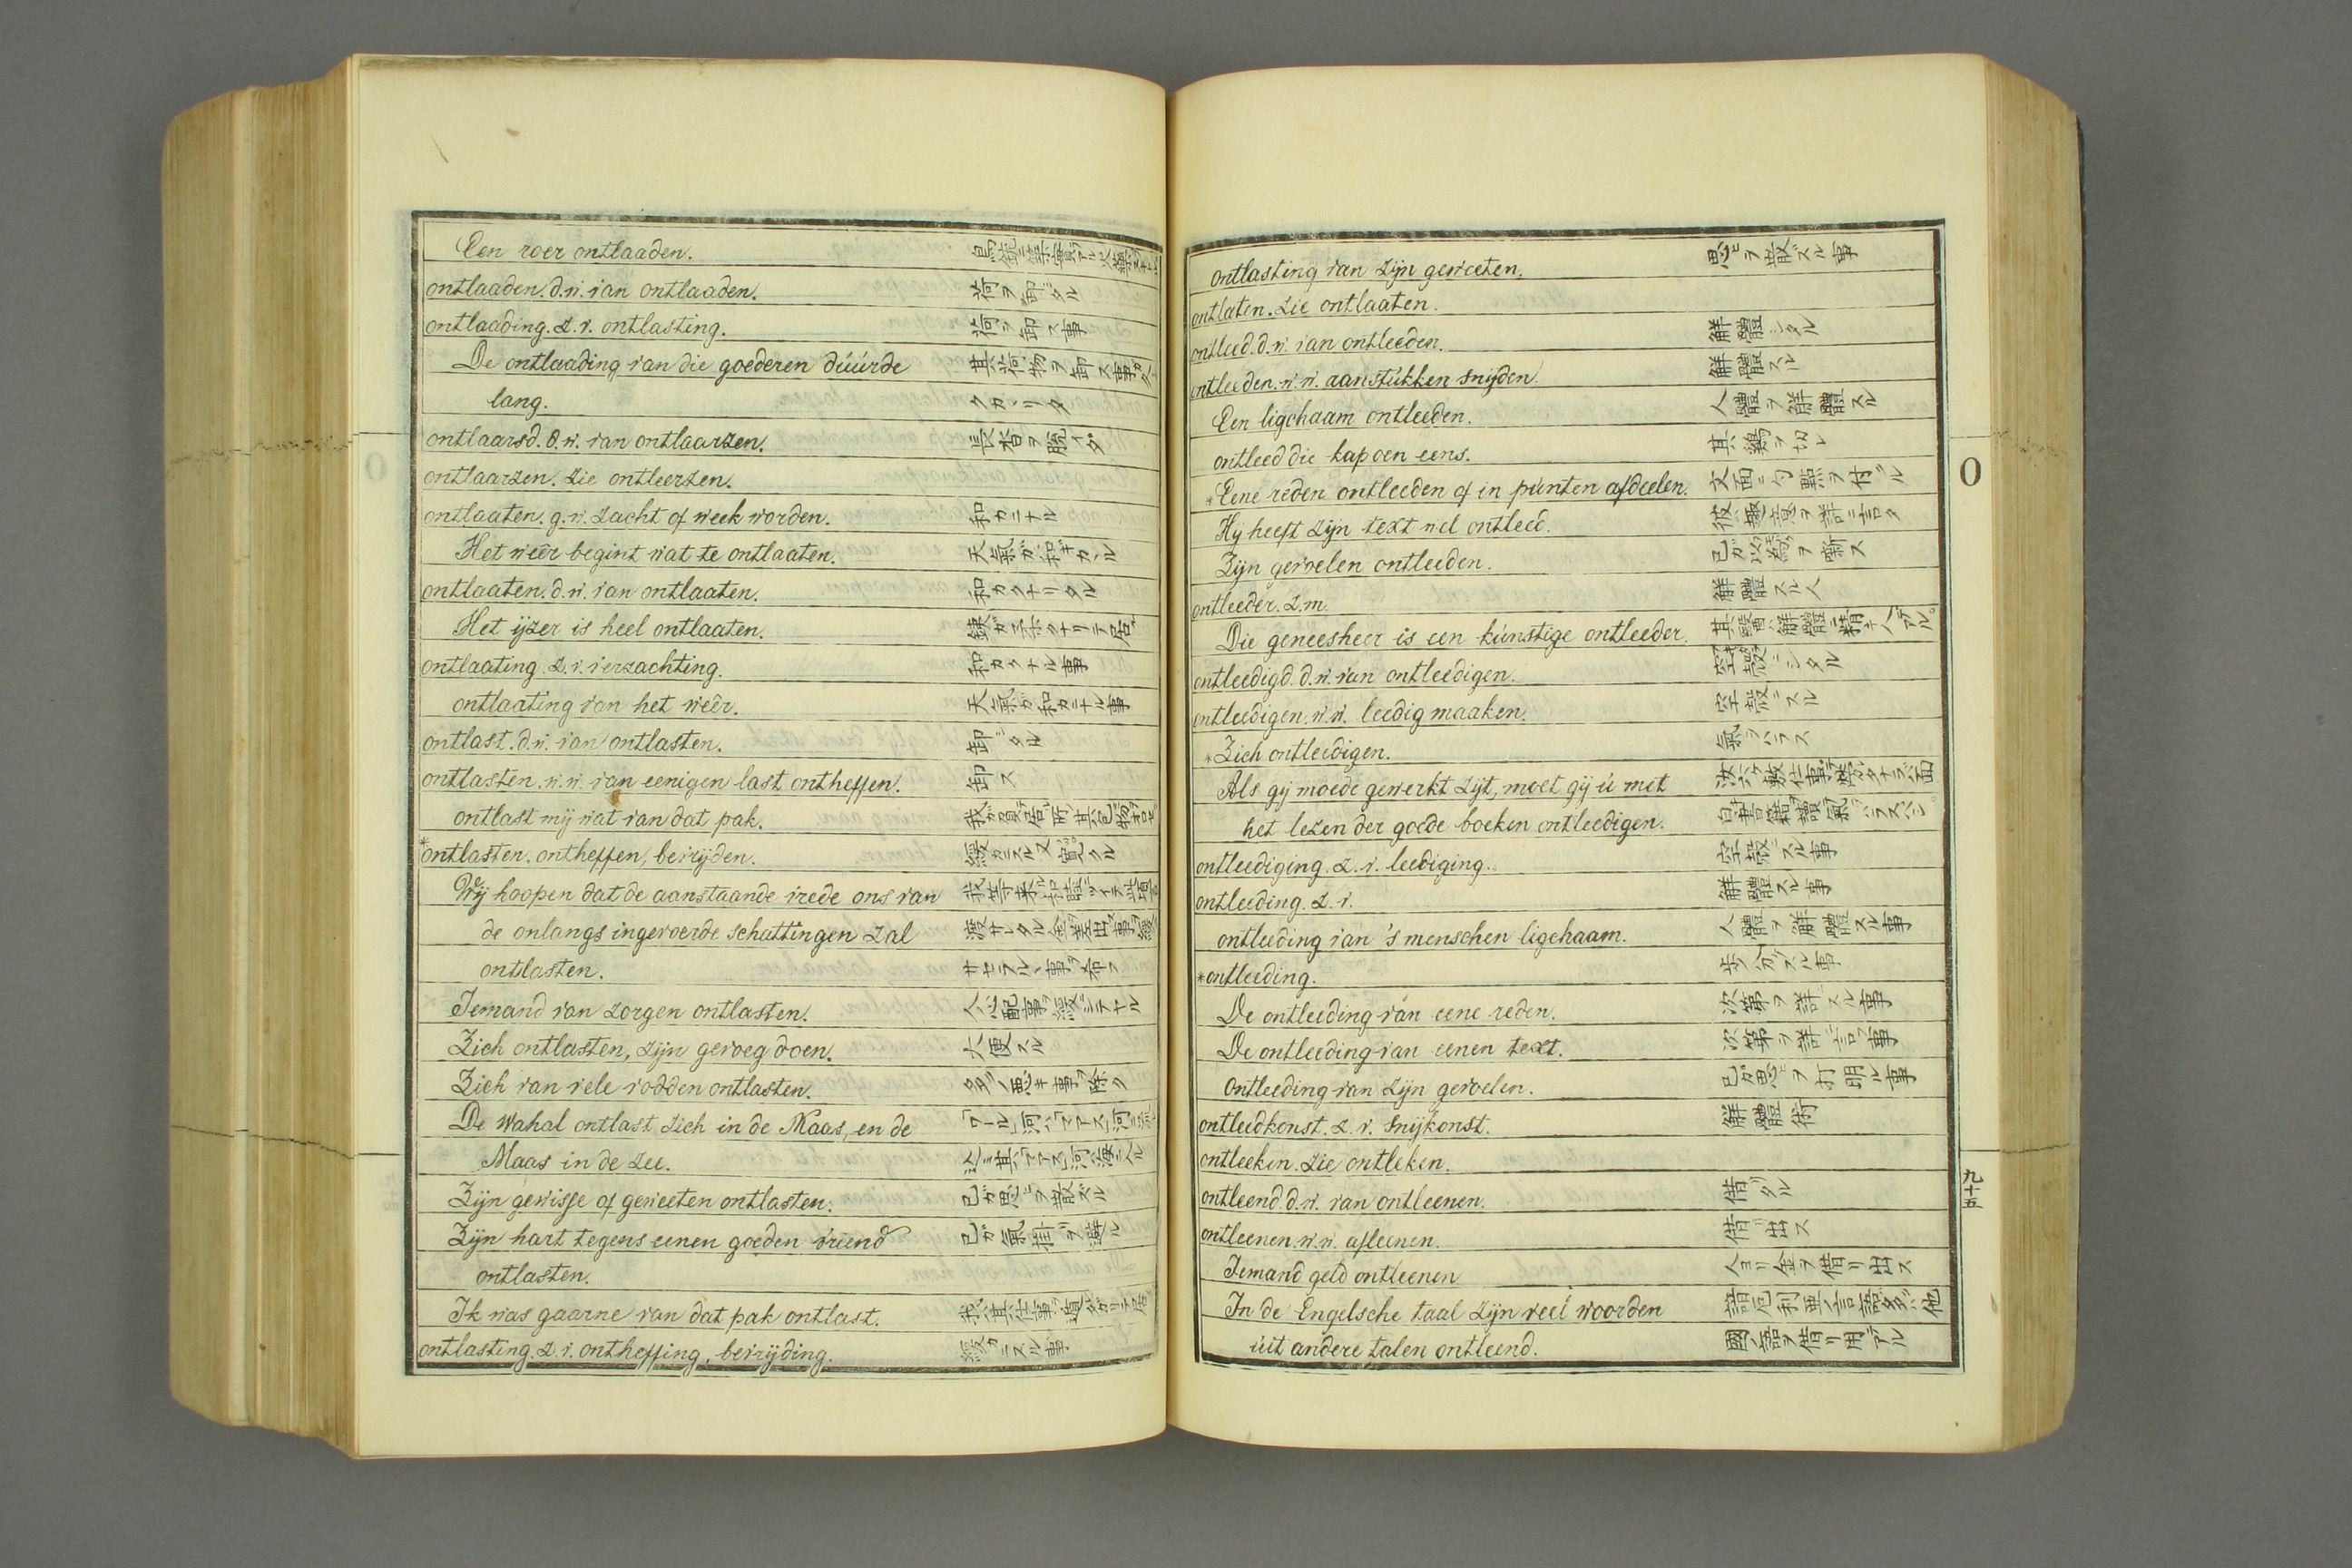 Een roer ontlaaden.
ontlaaden. d.w. van ontlaaden. 荷ヲ卸シタル
ontlaading. z.v. ontlasting. 荷ヲ卸ス事
De ontlaading van die goederen dúúrde 其荷物ヲ卸ス事ガ久シ
lang. クカヽリタ
ontlaarsd. d.w. van ontlaarzen. 長沓ヲ脱イダ
ontlaarzen. zie ontleerzen.
ontlaaten. g.w. zacht of week worden. 和カニナル
Het weêr begint wat te ontlaaten. 天氣ガ和ギカヽル
ontlaaten. d.w. van ontlaaten. 和カクナリタル
Het ijzer is heel ontlaaten.
ontlaating. z.v. verzachting. 和カクナル事
ontlaating van het weêr. 天氣ガ和カニナル事
ontlast. d.w. van ontlasten. 卸シタル
ontlasten. w.w. van eenigen last ontheffen. 卸ス
ontlast mij wat van dat pak.
*ontlasten. ontheffen, bevrijden.
Wij hoopen dat de aanstaande vrede ons van
de onlangs ingevoerde schattingen zal
ontlasten.
Iemand van zorgen ontlasten.
Zich ontlasten, zijn gevoeg doen. 大便スル
Zich van vele vodden ontlasten. 多クノ悪キ事ヲ除ク
De Wahal ontlast zich in de Maas, en de
Maas in de zee.
Zijn gewisse of geweeten ontlasten. 己ガ思ヒヲ散ズル
Zijn hart tegens eenen goeden vriend
ontlasten.
Ik was gaarne van dat pak ontlast.
ontlasting. z.v. ontheffing, bevrijding. 緩カニスル事
ontlasting van zijn geweeten. 思ヒヲ散ズル事
ontlaten. zie ontlaaten.
ontleed. d.w. van ontleeden. 解體シタル
ontleeden. w.w. aan stukken snijden. 解體スル
Een ligchaam ontleeden. 人體ヲ解體スル
ontleed die kapoen eens. 其鷄ヲ切レ
*Eene reden ontleeden of in púnten afdeelen. 文面ニ句點ヲ付ル
Hij heeft zijn text wel ontleed. 彼ノ趣意ヲ詳ニ言タ
Zijn gevoelen ontleeden.
ontleeder. z.m. 解體スル人
Die geneesheer is een kúnstige ontleeder.
ontleedigd. d.w. van ontleedigen. 空殻ニシタル
ontleedigen. w.w. leedig maaken. 空殻ニスル
*Zich ontleedigen. 氣ヲハラス
Als gij moede gewerkt zijt, moet gij ú met
het lezen der goede boeken ontleedigen.
ontleediging. z.v. leediging. 空殻ニスル事
ontleeding. z.v. 解體スル事
ontleeding van 's menschen ligchaam. 人體ヲ解體スル事
*ontleeding.
De ontleeding van eene reden. 次第ヲ詳ニスル事
De ontleeding van eenen text. 次第ヲ詳ニ言フ事
Ontleeding van zijn gevoelen. 己ガ思ヒヲ打明ル事
ontleedkonst. z.v. snijkonst. 解體術
ontleeken. zie ontleken.
ontleend. d.w. van ontleenen. 借リタル
ontleenen. w.w. afleenen. 借リ出ス
Iemand geld ontleenen 人ヨリ金ヲ借リ出ス
In de Engelsche taal zijn veel woorden 諳厄利亜ノ言語ニ多ク他
uit andere talen ontleend. 國ノ語ヲ借リ用テアル
O
九十五